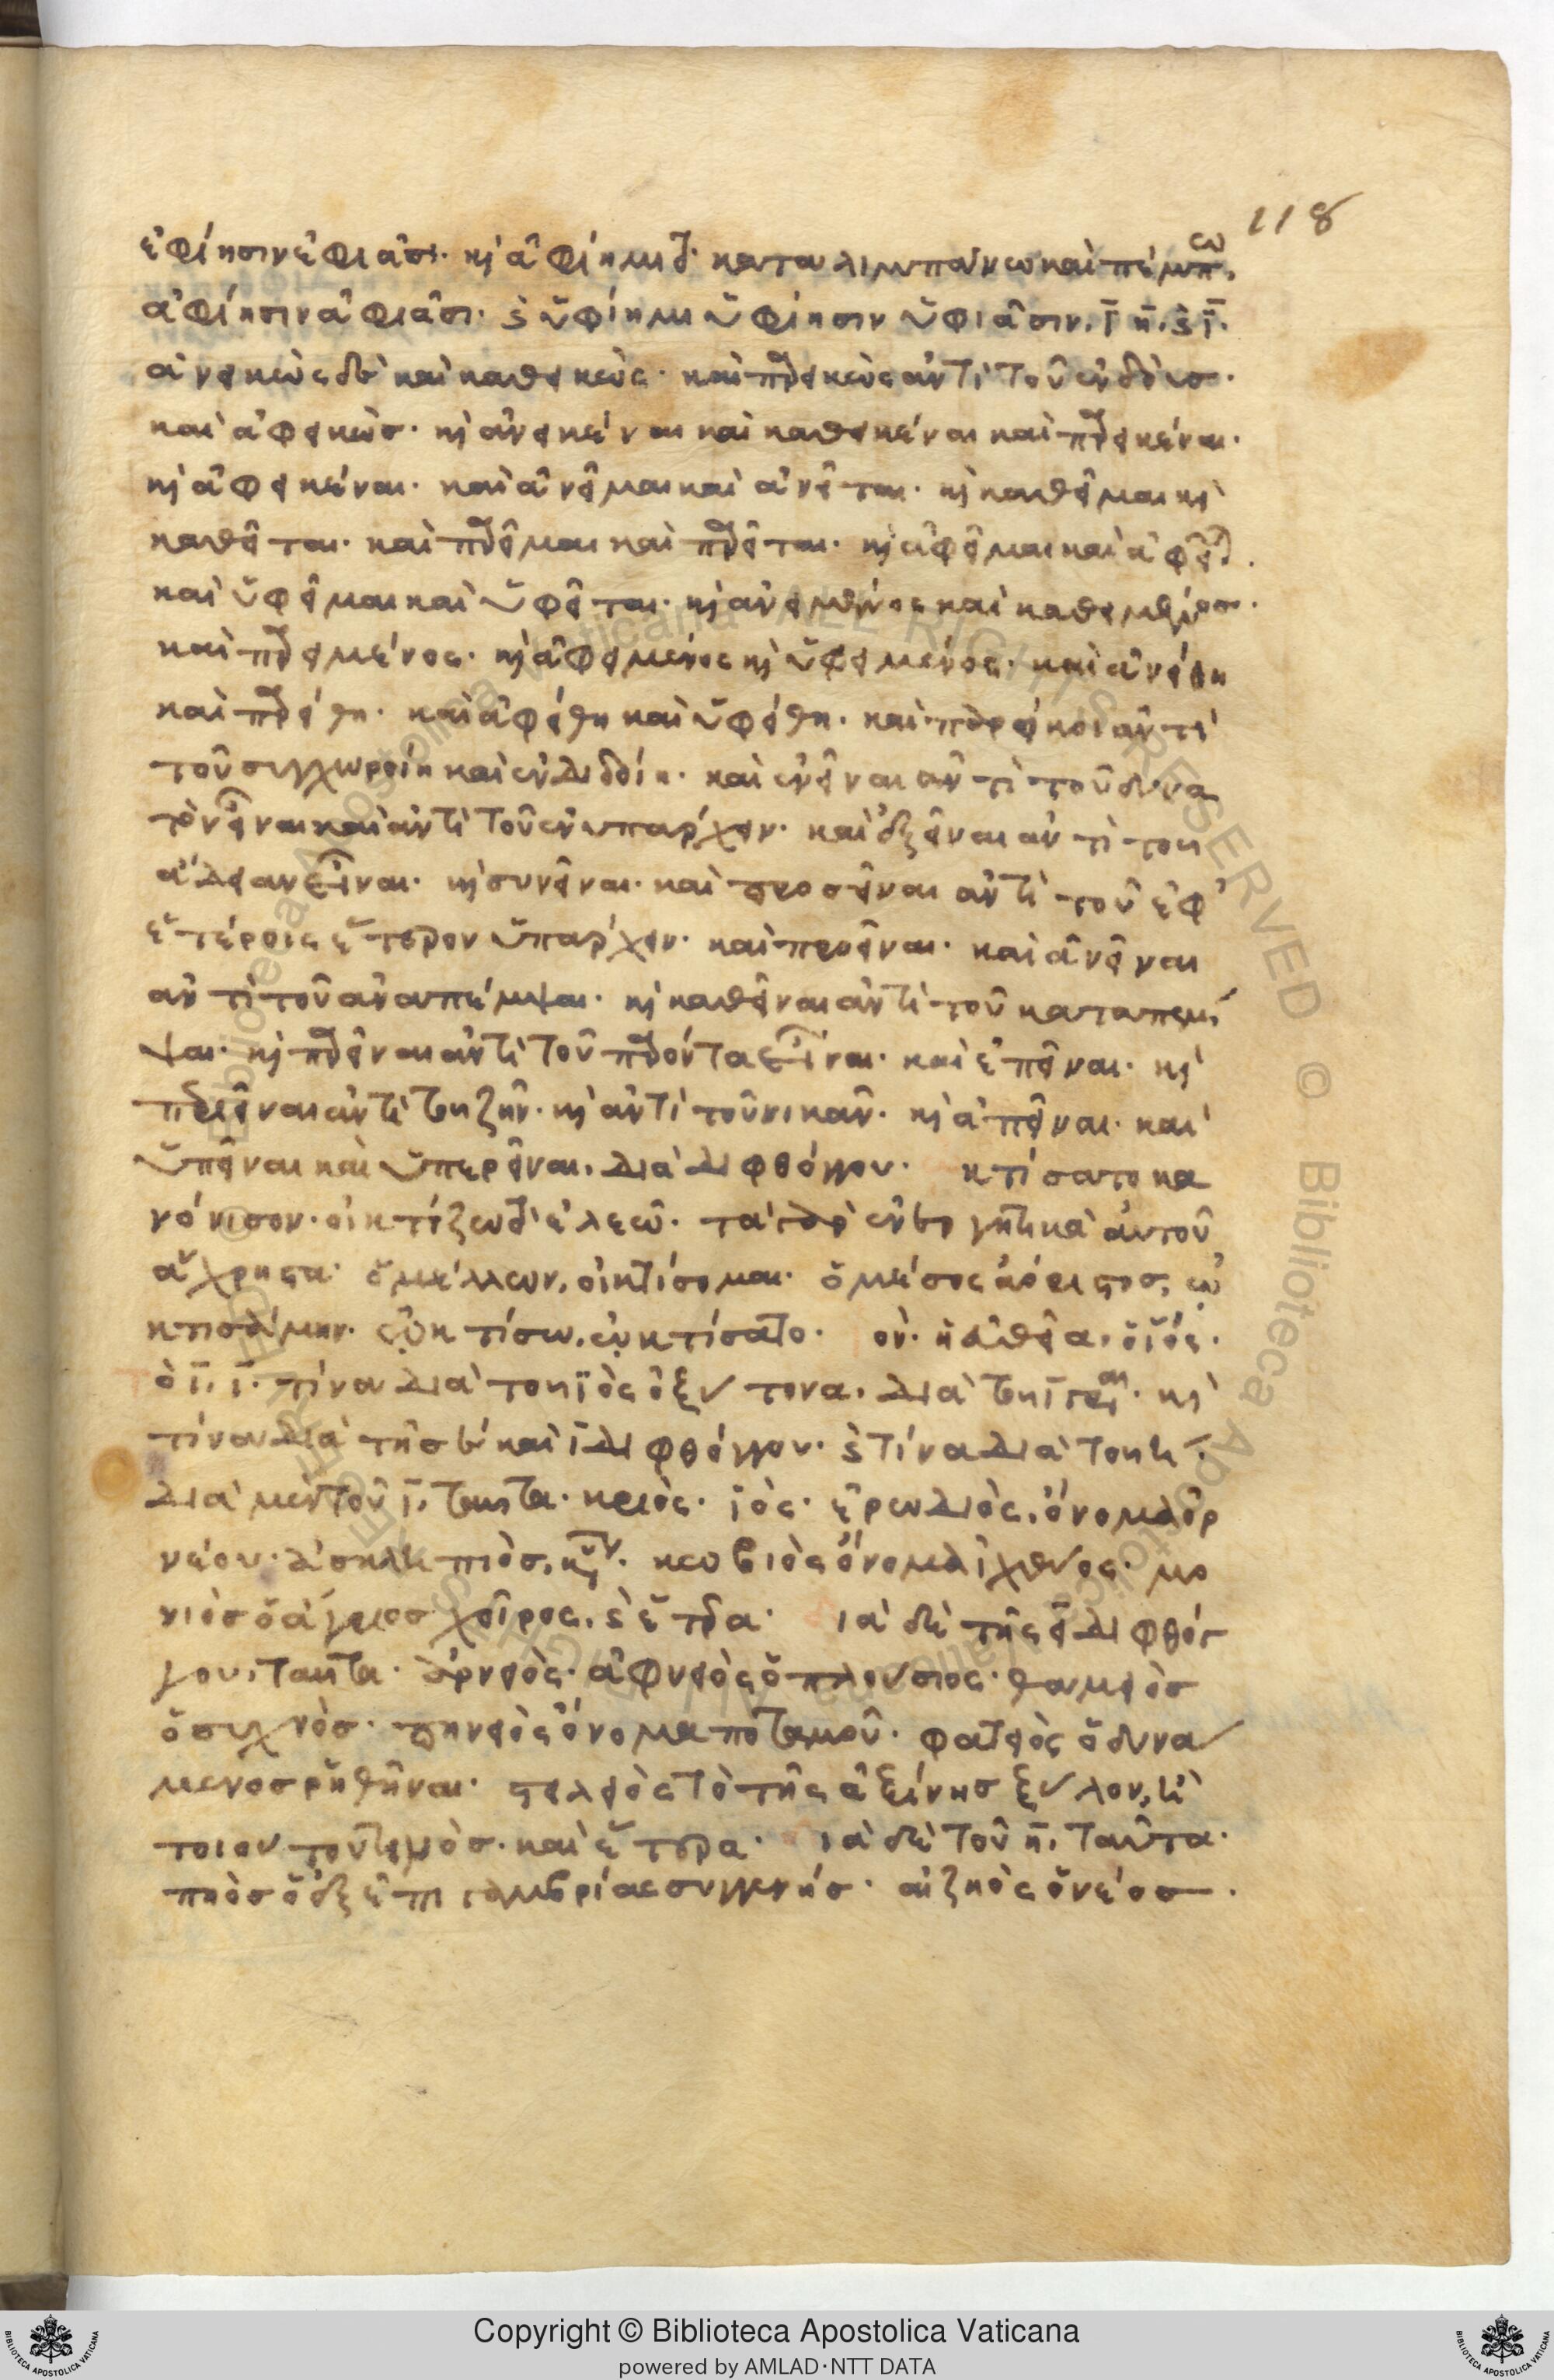 118
ἐφίησιν ἐφιᾶσι· κ(αὶ) ἀφίημι δ· καταλιμπάνω καὶ πέμπω,
ἀφίησιν ἀφιᾶσι· κ(αὶ) ὑφίημι ὑφίησιν ὑφιᾶσιν, ῑ η̄. κ(αὶ) ῑ.
ἀνεικὼς δὲ καὶ καθεικὼς· καὶ παρεικὼς ἀντὶ τοῦ ἐνδοὺσ·
καὶ ἀφεικὼσ· κ(αὶ) ἀνεικέναι καὶ καθεικέναι καὶ παρεικέναι·
κ(αὶ) ἀφεικέναι· καὶ ἀνεῖμαι καὶ ἀνεῖται· κ(αὶ) καθεῖμαι κ(αὶ)
καθεῖται· καὶ παρεῖμαι καὶ παρεῖται· κ(αὶ) ἀφεῖμαι καὶ ἀφεῖται.
καὶ ὑφεῖμαι καὶ ὑφεῖται· κ(αὶ) ἀνειμένος καὶ καθειμένοσ·
καὶ παρειμένος· κ(αὶ) ἀφειμένος κ(αὶ) ὑφειμένος· καὶ ἀνείθη
καὶ παρείθη· καὶ ἀφείθη καὶ ὑφείθη· καὶ παρείκοι ἀντὶ
τοῦ συγχωροίη καὶ ἐνδιδοίη· καὶ ἐνεῖναι ἀντὶ τοῦ δυνα
τὸν εἶναι καὶ ἀντὶ τοῦ ἐνυπάρχειν· καὶ ἐξεῖναι ἀντὶ του
ἄδειαν εἶναι· κ(αὶ) συνεῖναι· καὶ προσεῖναι ἀντὶ τοῦ ἐφ'
ἑτέροις ἕτερον ὑπάρχειν· καὶ προεῖναι· καὶ ἀνεῖναι
ἀντὶ τοῦ ἀναπέμψαι· κ(αὶ) καθεῖναι ἀντὶ τοῦ καταπέμ
ψαι· κ(αὶ) παρεῖναι ἀντὶ τοῦ παρόντα εἶναι· καὶ ἐπεῖναι· κ(αὶ)
περιεῖναι ἀντὶ του ζῆν· κ(αὶ) ἀντὶ τοῦ νικᾶν· κ(αὶ) ἀπεῖναι· καὶ
ὑπεῖναι καὶ ὑπερεῖναι, διὰ διφθόγγου· κτίσατο κα
νόνισον· οἰκτίζω τὸ ἐλεῶ· τὰ παρ' ἐνεργητικὰ αὐτοῦ
ἄχρηστα· ὁ μέλλων, οἰκτίσομαι· ὁ μέσος ἀόριστος, ᾠ
κτισάμην· ᾠκτίσω, ᾠκτίσατο· ον· ἡ εὐθεῖα, ὁ ἰός·
ὁ ῑ. ῑ. τίνα διὰ του ϊὸς ὀξύτονα, διὰ του ῑ γραι· κ(αὶ)
τίνα διὰ τῆσ ε καὶ ῑ διφθόγγου· κ(αὶ) τίνα διὰ του η̄·
διὰ μὲν τοῦ ῑ, ταυτα· κριὸς· ἰὸς· ἐρωδιὸς, ὄνομα ὀρ
νέου· ἀσκληπιὸσ, κύ(ριον)· κωβιὸς ὄνομα ἰχθύος· μο
νιὸσ ὁ ἄγριοσ χοῖρος, κ(αὶ) ἕτερα· ιὰ δὲ τῆς ει διφθόγ
γου, ταῦτα· ὀρνειὸς· ἀφνειὸς ὁ πλούσιος· θαμειὸσ
ὁ συχνὸσ· πηνειὸς ὄνομα ποταμοῦ· φατειὸς ὁ δυνά
μενοσ ῥηθῆναι· στειλειὸς τὸ τῆς ἀξίνησ ξύλον, κ(αὶ)
τοιουτουτειμὸσ· καὶ ἕτερα· ιὰ δὲ τοῦ η̄, ταῦτα·
πηὸσ ὁ ἐξ ἐπιγαμβρίας συγγενήσ· αἰζηὸς ὁ νέοσ.
Copyright © Biblioteca Apostolica Vaticana
powered by AMLAD·NTT DATA